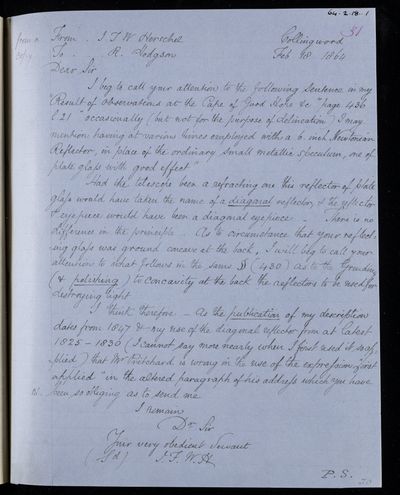 64-2-18-1
51
from a
copy
From. J F W Herschel
Collingwood
To . R. Hodgson
Feb 18. 1864
Dear Sir
I beg to call your attention to the following Sentence in my
"Result of observations at the Cape of Good Hope &c" page 436
l 21 "occasionally (but not for the purpose of delineation) I may
mention having at various times employed with a 6 inch Newtonian
Reflector, in place of the ordinary small metallic speculum, one of
plate glass with good effect"
Had the telescope been a refracting one this reflector of plate
glass would have taken the name of a diagonal reflector, & the reflector
& eyepiece would have been a diagonal eyepiece - There is no
difference in the principle. As to circumstance that your reflect-
ing glass was ground concave at the back, I will beg to call your
attention to what follows in the same § (430) as to the Grinding
(& polishing) to concavity at the back the reflectors to be used for
destroying light
I think therefore - As the publication of my description
dates from 1847 & my use of the diagonal reflector from at latest
1825 - 1830 (I cannot say more nearly when I first used it so ap-
plied) that Mr Pritchard is wrong in the use of the expression "first
applied" in the altered paragraph of his address which you have
been so obliging as to send me
I remain
Dr Sir
Your very obedient Servant
(Sd) J. F. W. H
P.S.